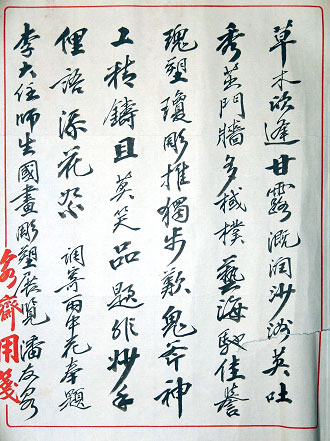 草木欣逢甘露溉润沙洲英吐
秀蒸门墙多棫樸藝海馳佳誉
瑰塑瓊彫推獨步歎鬼斧神
工精鑄且莫笑品題非妙手
俚語添花恶 調寄雨中花奉題
李大任師生國畫彫塑展覽潘友
齋用箋